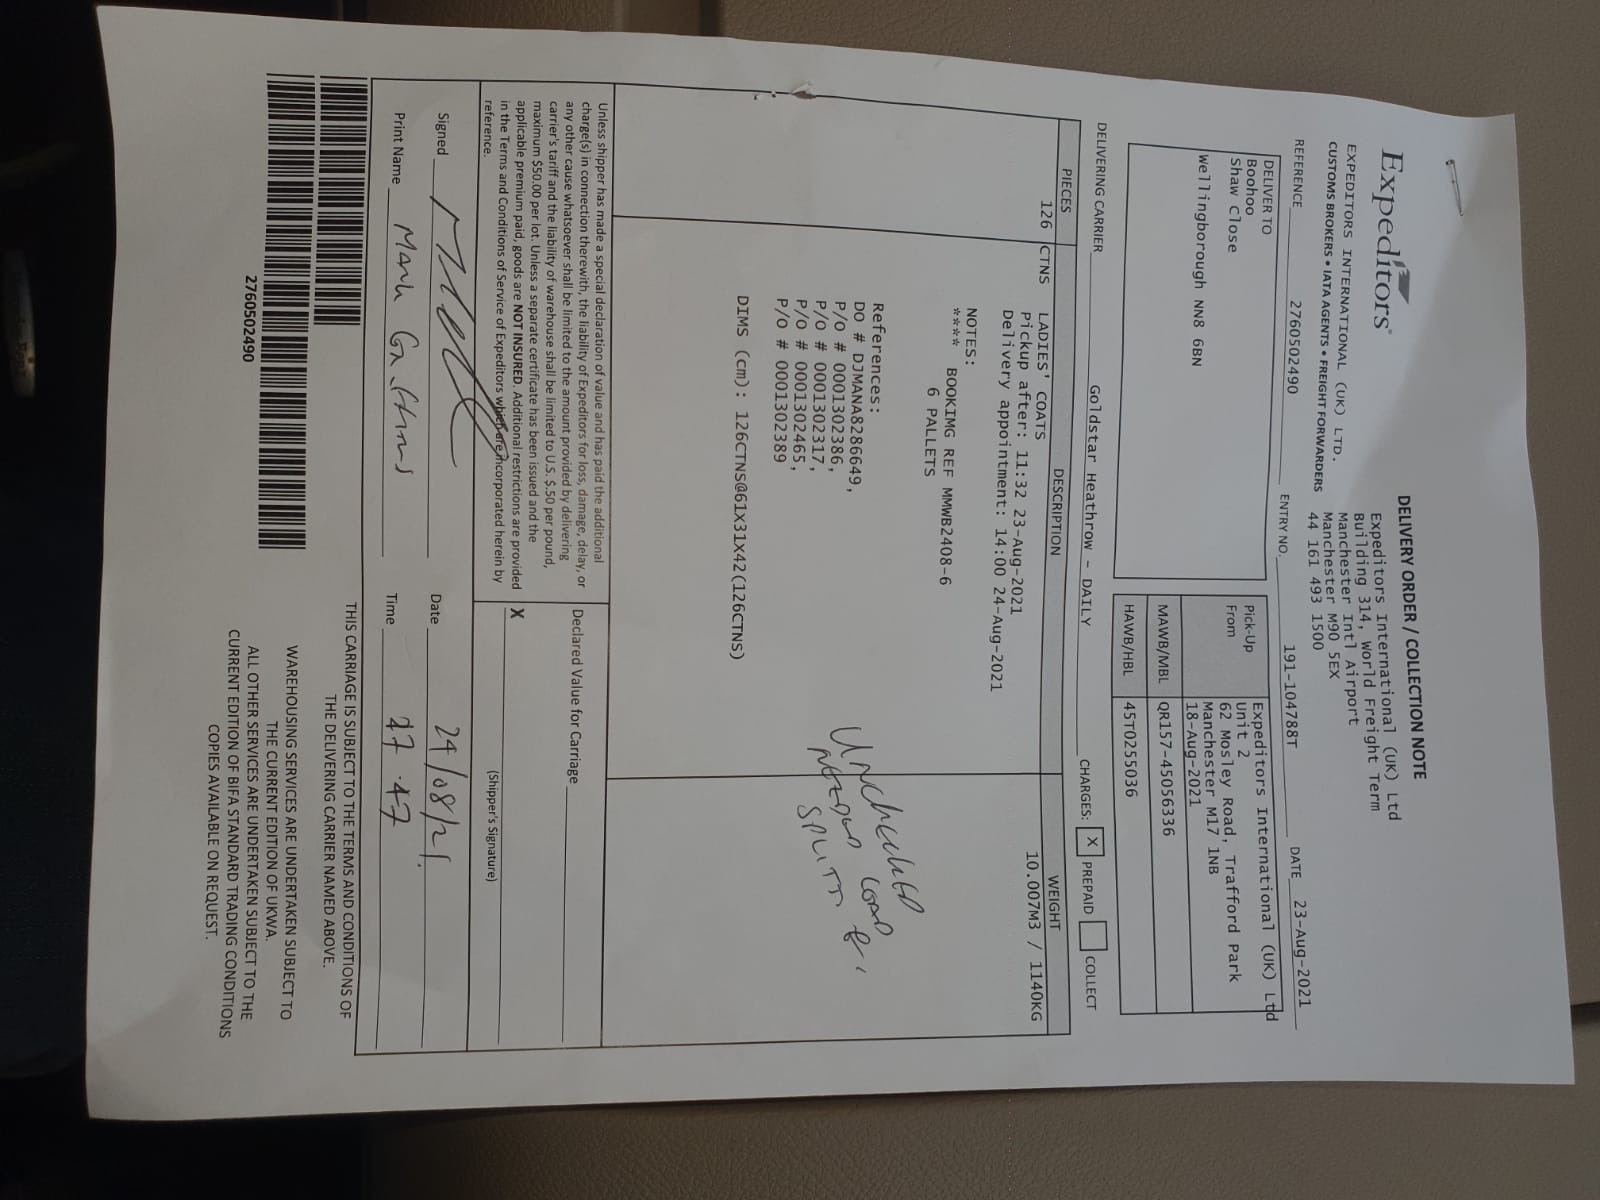 Expeditors®
EXPEDITORS INTERNATIONAL (UK) LTD.
CUSTOMS BROKERS • IATA AGENTS • FREIGHT FORWARDERS
DELIVERY ORDER / COLLECTION NOTE
Expeditors International (UK) Ltd
Building 314, World Freight Term
Manchester Intl Airport
Manchester M90 5EX
44 161 493 1500
REFERENCE 2760502490 ENTRY NO. 191-104788T DATE 23-Aug-2021
DELIVER TO
Boohoo
Shaw Close
Wellingborough NN8 6BN
Pick-Up From
Expeditors International (UK) Ltd
Unit 2
62 Mosley Road, Trafford Park
Manchester M17 1NB
18-Aug-2021
MAWB/MBL QR157-45056336
HAWB/HBL 45T0255036
DELIVERING CARRIER Goldstar Heathrow - DAILY CHARGES: X PREPAID COLLECT
PIECES DESCRIPTION WEIGHT
126 CTNS LADIES' COATS 10.007M3 / 1140KG
Pickup after: 11:32 23-Aug-2021
Delivery appointment: 14:00 24-Aug-2021
NOTES:
**** BOOKIMG REF MMWB2408-6
6 PALLETS
References:
DO # DJMANA8286649,
P/O # 0001302386,
P/O # 0001302317,
P/O # 0001302465,
P/O # 0001302389
DIMS (cm): 126CTNS@61X31X42(126CTNS)
UNCHECKED
LOAD
SPLIT
Unless shipper has made a special declaration of value and has paid the additional
charge(s) in connection therewith, the liability of Expeditors for loss, damage, delay, or
any other cause whatsoever shall be limited to the amount provided by delivering
carrier's tariff and the liability of warehouse shall be limited to U.S. $.50 per pound,
maximum $50.00 per lot. Unless a separate certificate has been issued and the
applicable premium paid, goods are NOT INSURED. Additional restrictions are provided
in the Terms and Conditions of Service of Expeditors which are incorporated herein by
reference.
Declared Value for Carriage
X
(Shipper's Signature)
Signed Date 24/08/21.
Print Name Mark Time 17.47
THIS CARRIAGE IS SUBJECT TO THE TERMS AND CONDITIONS OF
THE DELIVERING CARRIER NAMED ABOVE.
WAREHOUSING SERVICES ARE UNDERTAKEN SUBJECT TO
THE CURRENT EDITION OF UKWA.
ALL OTHER SERVICES ARE UNDERTAKEN SUBJECT TO THE
CURRENT EDITION OF BIFA STANDARD TRADING CONDITIONS
COPIES AVAILABLE ON REQUEST.
2760502490